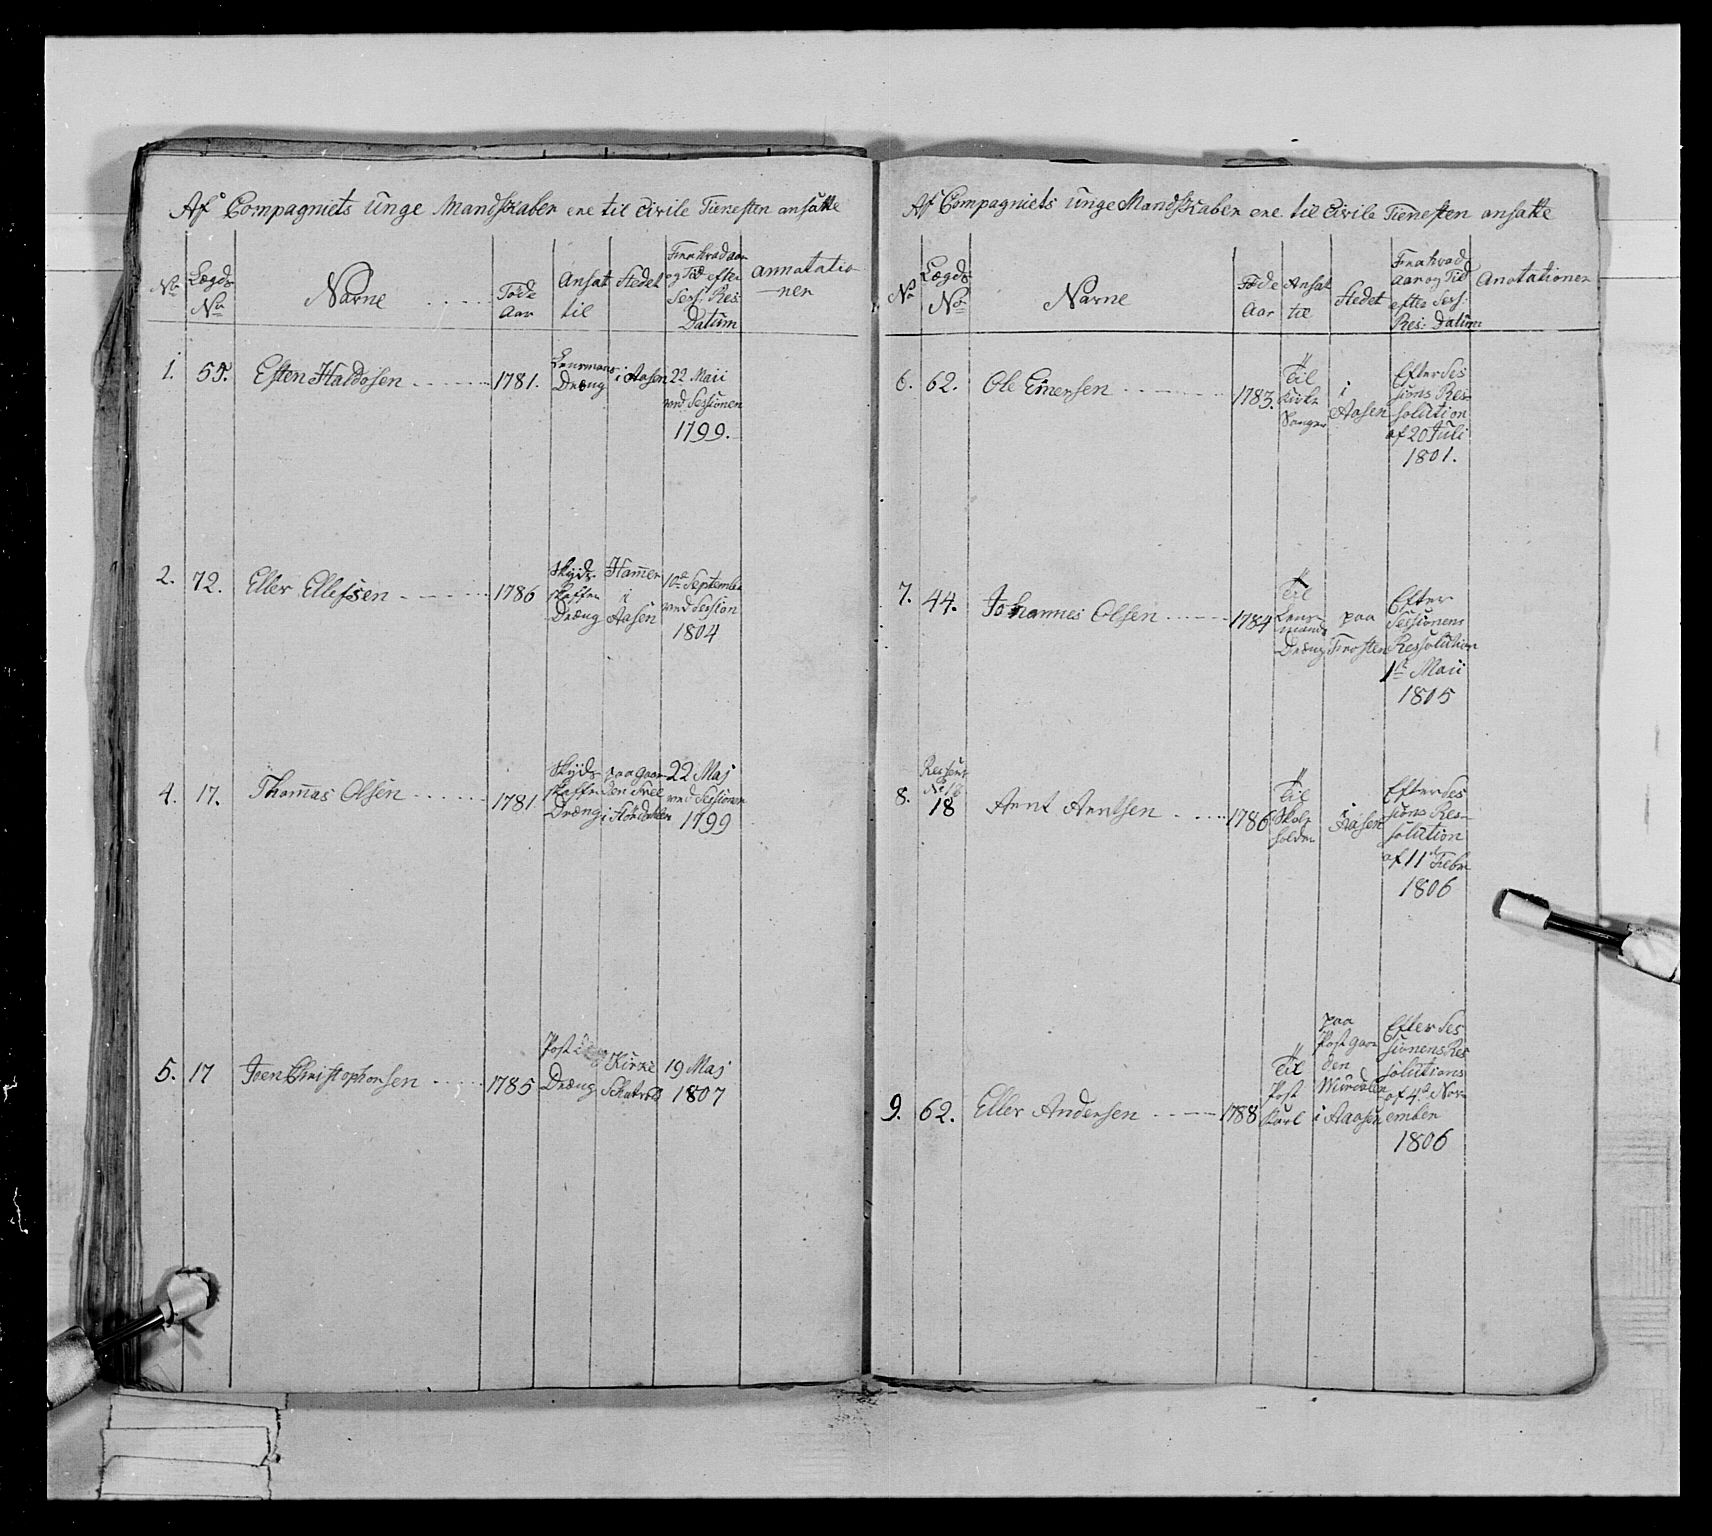 Af Compagniets unge Mandskaber ere til Civile Tienesten ansatte
No
Lægds No
Navne
Føde Aar
Ansat til
Stedet
Fra hvad aar og Tid efter Sess: Res: Datum
Annotationer
1. 55. Esten Haldosen 1781. Lensmans Dreng i Aasen 22 Maii ved Sessionen 1799.
2. 72. Eller Ellefsen 1786 Skyds skaffer Dræng Hammer i Aasen 10de September ved Session 1804
4. 17. Thomas Olsen 1781. Skyds skaffer Dræng paa Gaarden i Størdahlen 22 Maj ved Sessionen 1799
5. 17 Joen Christophersen 1785 Post Dræng Kirke 19 Maj 1807
Af Compagniets unge Mandskaber ere til Civile Tienesten ansatte
No
Lægds No
Navne
Føde Aar
Ansat til
Stedet
Fra hvad Aar og Tid efter Sess: Res: Datum
Anotationer
6. 62. Ole Einersen 1783. Til Kirke Sanger i Aasen Efter Sessions Ressolution af 20 Juli 1801.
7. 44. Johannes Olsen 1784 Til Lensmands Dræng paa Frosten Efter Sessionens Ressolution 1ste Maii 1805
8. 18 Arnt Arntsen 1786 Til Skoleholder i Aasen Efter Sessions Ressolution af 11te Febr 1806
9. 62. Eller Andersen 1788 Til Post Karl paa Postgaarden i Aaasen Efter Sessionens Ressolutions af 4de November 1806